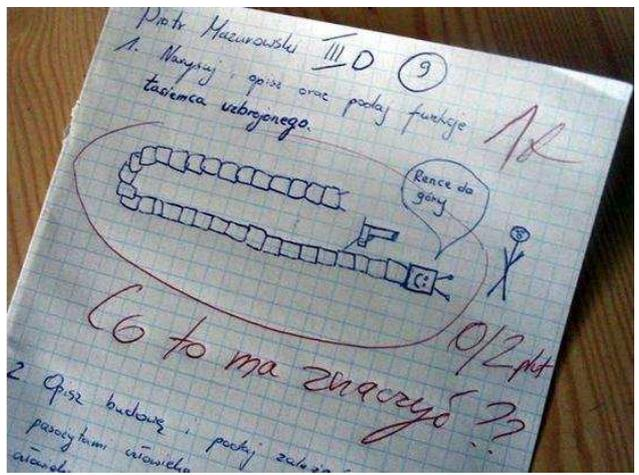 Piotr Mazurowski III D 9
1. Narysuj i opisz oraz podaj funkcje
tasiemca uzbrojonego.
1
Rence do
góry
0/2 pkt
Co to ma znaczyć??
2 Opisz budowę i podaj
pasożytami człowieka